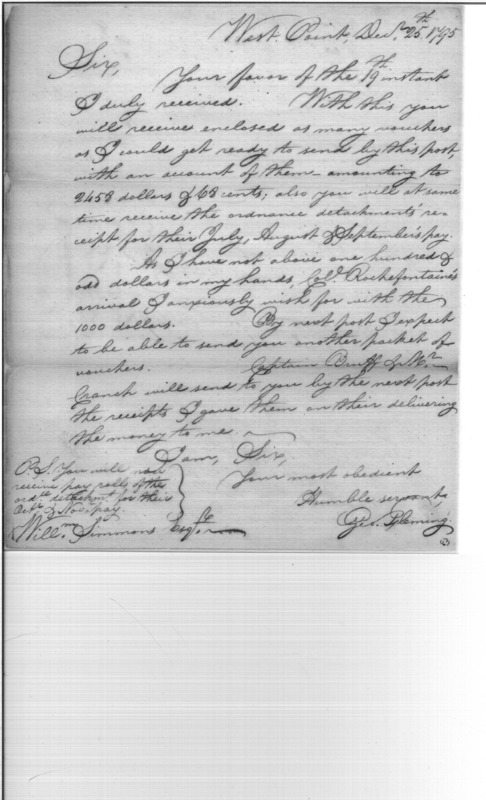 West Point, Decr. 25th 1795
Sir,
Your favor of the 19th instant
I duly received. With this you
will receive enclosed as many vouchers
as I could get ready to send by this post,
with an account of them amounting to
2453 dollars & 63 cents; also you will at same
time receive the ordnance detachments re-
ceipt for their July, August & September's pay.
As I have not above one hundred &
odd dollars in my hands, Colo. Rochefontaine's
arrival I anxiously wish for with the
1000 dollars. By next post I expect
to be able to send you another packet of
vouchers. Captain Bruff & Mr.
Cranch will send to you by the next post
the receipts I gave them on their delivering
the money to me.
I am, Sir,
Your most obedient
Humble servant,
Geo. Fleming
P.S. You will now
receive pay rolls of the
ordce. detachmt. for their
Octr. & Novr. pay.
Willm. Simmons Esqr.